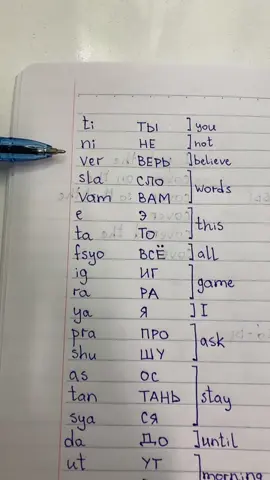 ti ТЫ you
ni НЕ not
ver ВЕРЬ believe
sla СЛО words
vam ВАМ
e Э this
ta ТО
fsyo ВСЁ all
ig ИГ game
ra РА
ya Я I
pra ПРО ask
shu ШУ
as ОС stay
tan ТАНЬ
sya СЯ
da ДО until
ut УТ morning